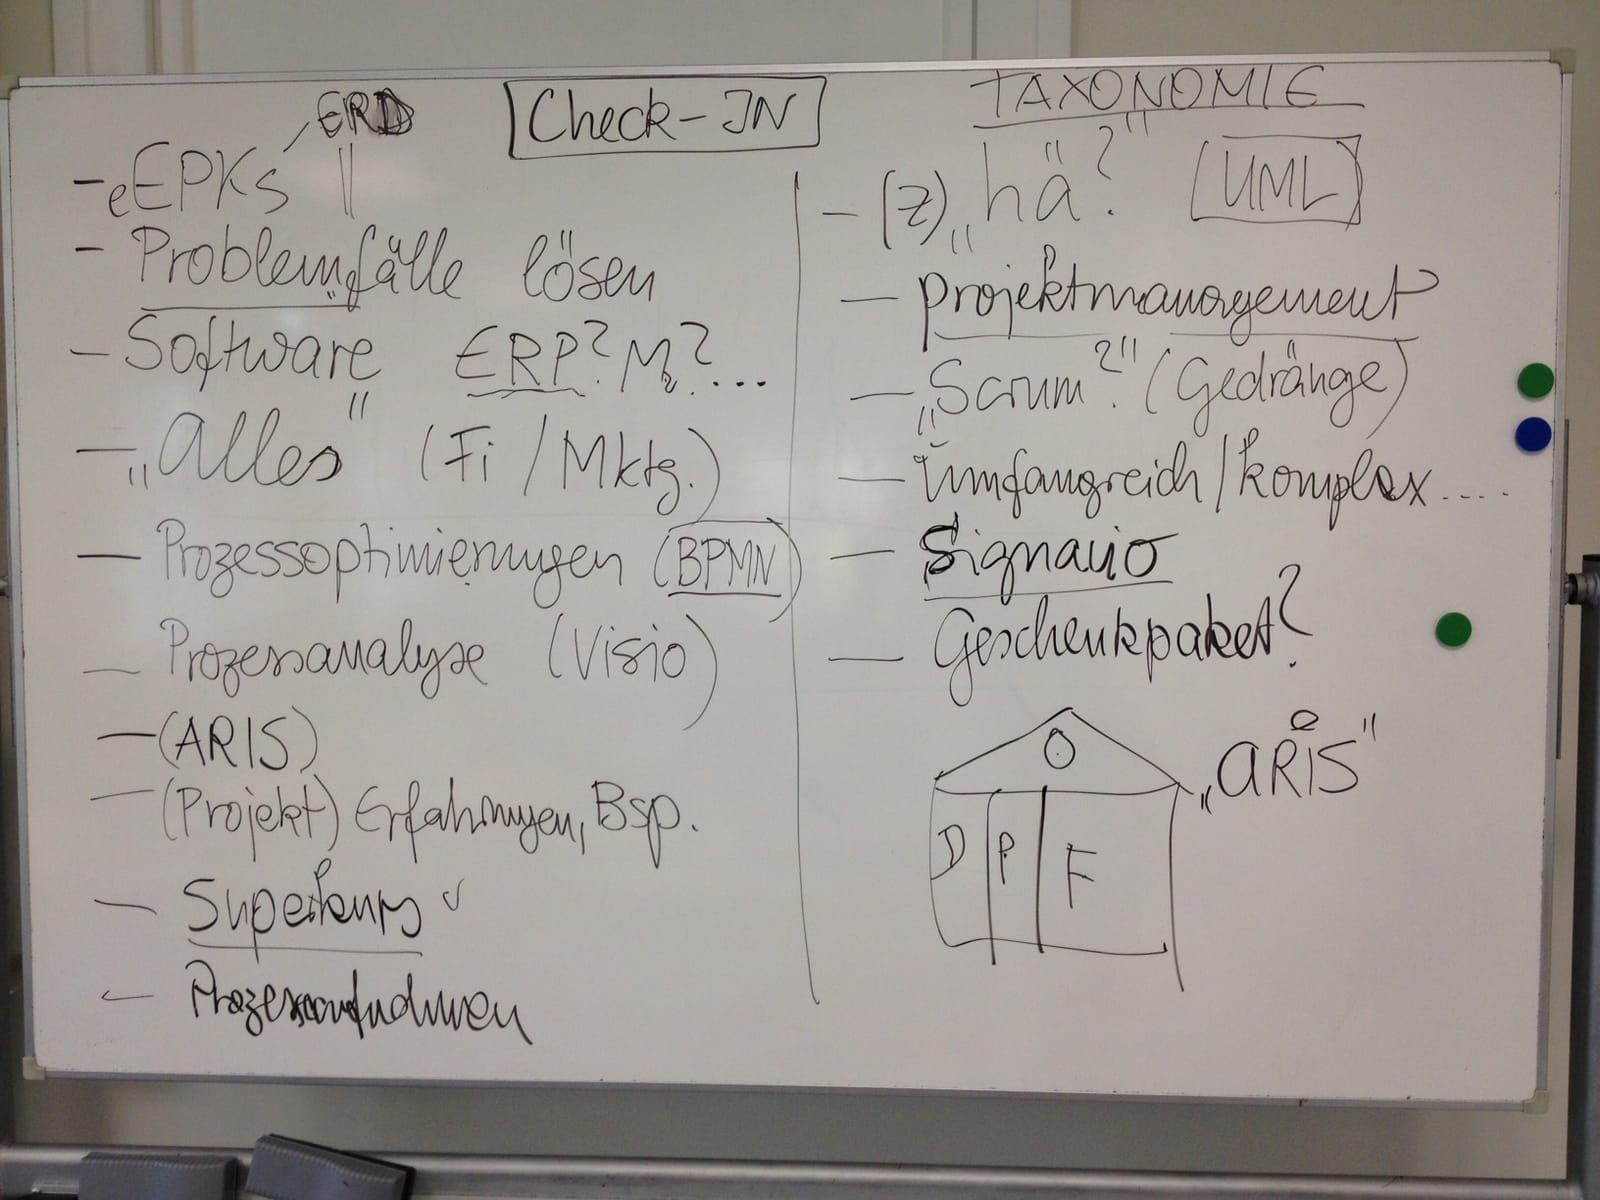 Check-IN
ERD
- eEPKs
- Problemfälle lösen
- Software ERP? M?...
- „Alles" (Fi / Mktg.)
- Prozessoptimierungen (BPMN)
- Prozessanalyse (Visio)
- (ARIS)
- (Projekt) Erfahrungen, Bsp.
- Superkurs ✓
- Prozessaufnahmen
TAXONOMIE
- (Z) „hä?" UML
- Projektmanagement
- „Scrum?" (Gedränge)
- Umfangreich / komplex ....
- Signavio
- Geschenkpaket?
O
D P F
„ARIS"